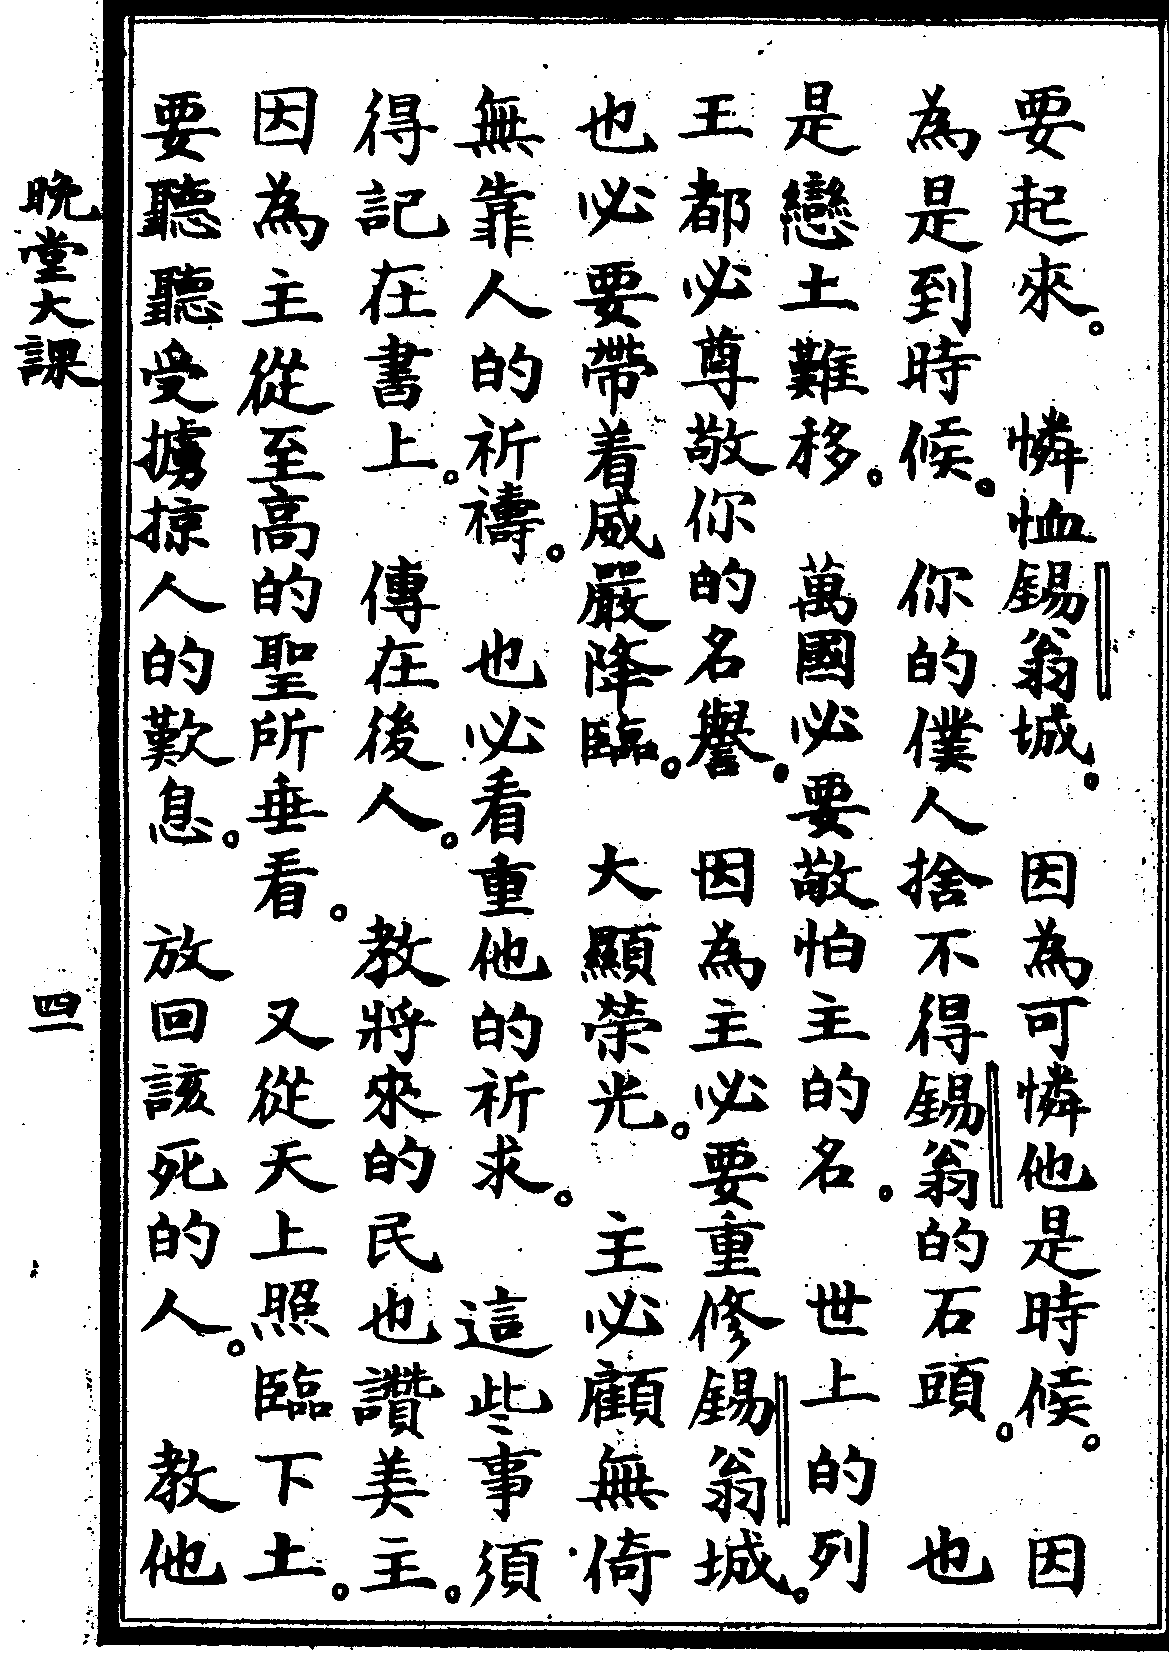 要起來。　憐恤錫翁城。　因為可憐他是時候。　因
為是到時候。　你的僕人捨不得錫翁的石頭。　也
是戀土難移。　萬國必要敬怕主的名。　世上的列
王都必尊敬你的名譽。　因為主必要重修錫翁城。
也必要帶着威嚴降臨。　大顯榮光。　主必顧無倚
無靠人的祈禱。　也必看重他的祈求。　這些事須
得記在書上。　傳在後人。　教將來的民也讚美主。
因為主從至高的聖所垂看。　又從天上照臨下土。
要聽聽受擄掠人的歎息。　放回該死的人。　教他
晚堂大課　四